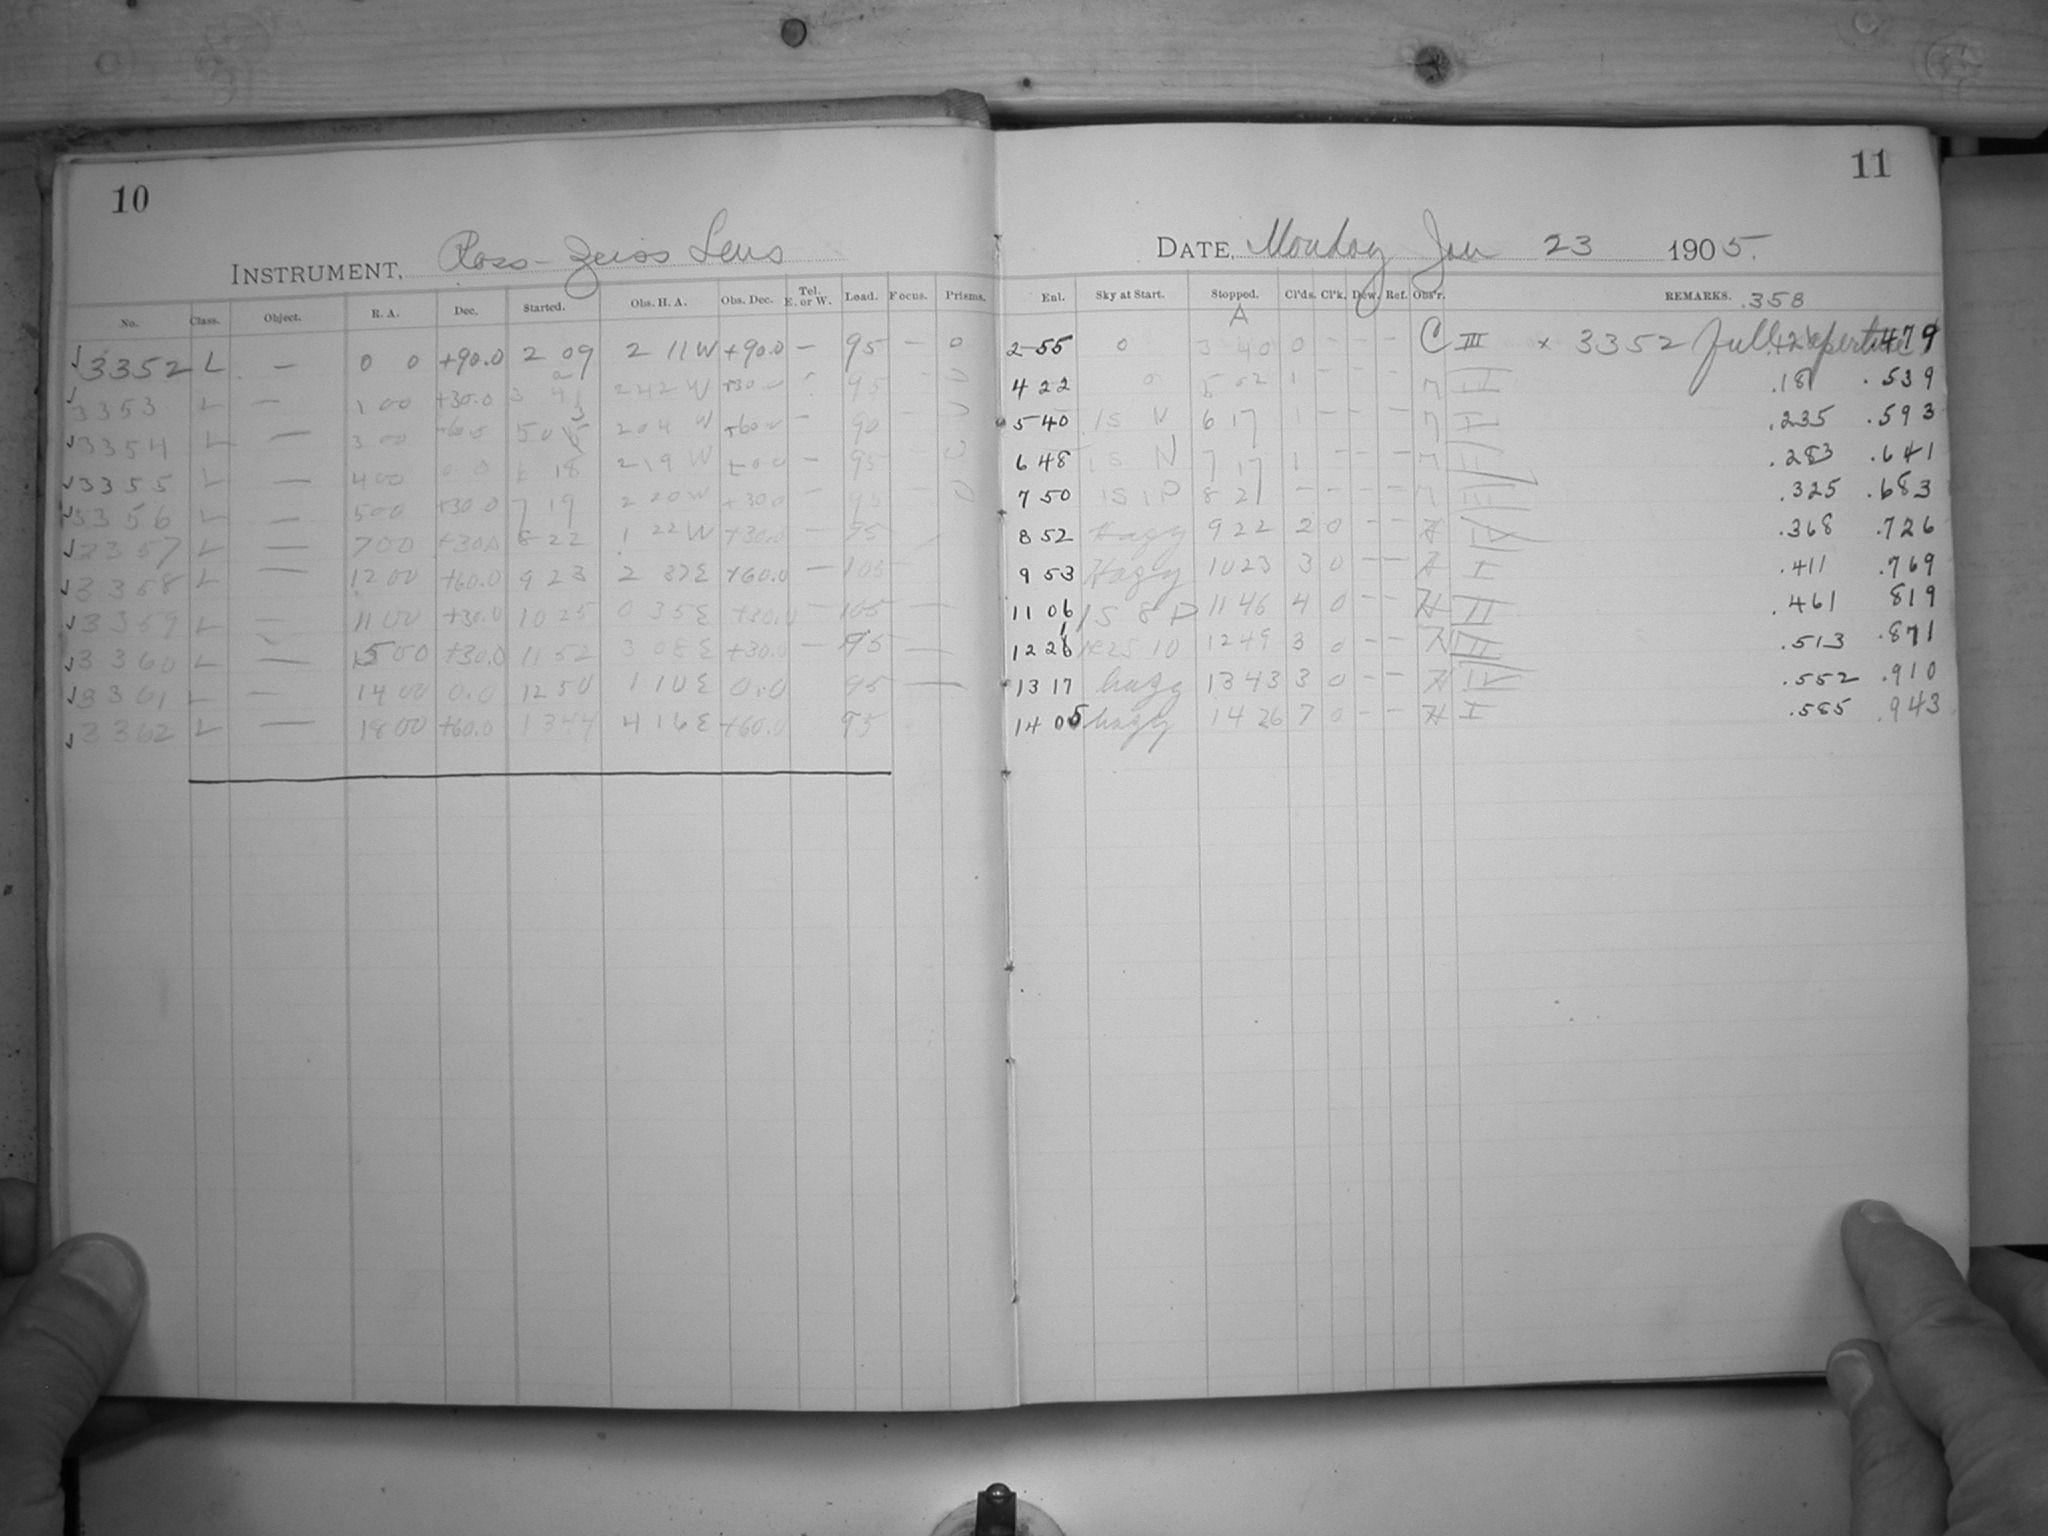 10
INSTRUMENT, Ross-Zeiss Lens
No. Class. Object. R. A. Dec. Started. Obs. H. A. Obs. Dec. Tel. E. or W. Load. Focus. Prisms.
3352 L — 0 0 +90.0 2 09 2 11 W +90.0 — 95 — 0
3353 L — 1 00 +30.0 3 2 42 W +30.0 95
3354 L — 3 00 +60.0 5 0 2 04 W +60.0 90
3355 L — 4 00 0.0 6 18 2 19 W — 95
3356 L — 5 00 +30.0 7 19 2 20 W +30.0 — 95
3357 L — 7 00 +30.0 8 22 1 22 W +30.0 — 95
3358 L — 12 00 +60.0 9 23 2 37 E +60.0 — 105
3359 L — 11 00 +30.0 10 25 0 35 E +30.0 — 105 —
3360 L — 15 00 +30.0 11 52 3 08 E +30.0 — 95 —
3361 L — 14 00 0.0 12 50 1 10 E 0.0 95 —
3362 L — 18 00 +60.0 13 44 4 16 E +60.0 95
11
DATE, Monday Jan 23 1905.
Enl. Sky at Start. Stopped. Cl'ds. Cl'k. Dew. Ref. Obs'r. REMARKS. .358
A
2 55 0 3 40 0 — — — C III × 3352 Full aperture .479
4 22 0 5 02 1 — — — IV .181 .539
5 40 1S N 6 17 1 — — — I .235 .593
6 48 1S N 7 17 1 — — — II .283 .641
7 50 1S 1P 8 21 — — — — III .325 .683
8 52 Hazy 9 22 2 0 — — H IV .368 .726
9 53 Hazy 10 23 3 0 — — H I .411 .769
11 06 1S 8P 11 46 4 0 — — H II .461 819
12 2 12 49 3 0 — — H III .513 .871
13 17 hazy 13 43 3 0 — — H IV .552 .910
14 05 hazy 14 26 7 0 — — H I .585 .943